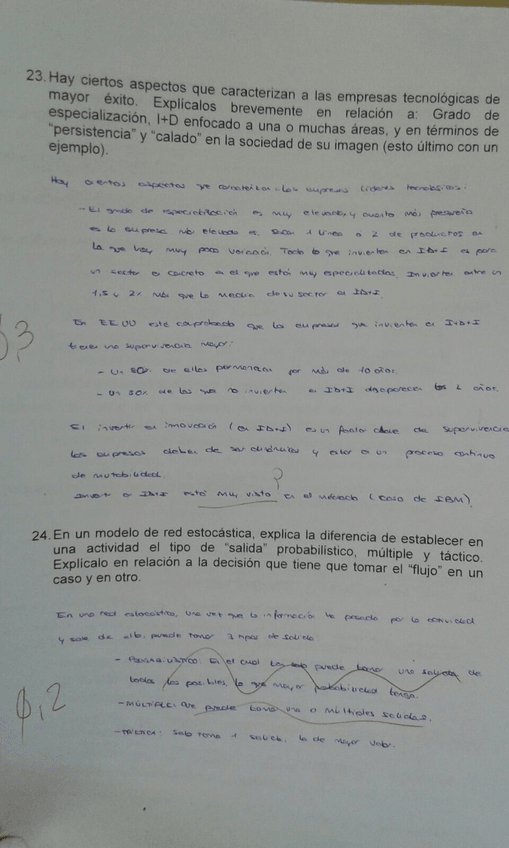 23. Hay ciertos aspectos que caracterizan a las empresas tecnológicas de
mayor éxito. Explícalos brevemente en relación a: Grado de
especialización, I+D enfocado a una o muchas áreas, y en términos de
"persistencia" y "calado" en la sociedad de su imagen (esto último con un
ejemplo).
Hay ciertos aspectos que caracterizan a las empresas líderes tecnológicas:
- El grado de especialización es muy elevado, y cuanto más pequeña
es la empresa más elevado es. Sacan 1 línea o 2 de productos en
la que hay muy poca variación. Todo lo que invierten en ID+I es para
un sector concreto en el que están muy especializados. Invierten entre un
1,5 y 2% más que la media de su sector en ID+I.
En EE.UU está comprobado que las empresas que invierten en I+D+I
tienen una supervivencia mayor:
- Un 80% de ellas permanecen por más de 10 años.
- Un 50% de las que no invierten en ID+I desaparecen a los 2 años.
El invertir en innovación (en ID+I) es un factor clave de supervivencia
las empresas deben de ser dinámicas y estar en un proceso continuo
de mutabilidad.
?
Invertir en ID+I está muy visto en el mercado (caso de IBM).
24. En un modelo de red estocástica, explica la diferencia de establecer en
una actividad el tipo de "salida" probabilístico, múltiple y táctico.
Explícalo en relación a la decisión que tiene que tomar el "flujo" en un
caso y en otro.
En una red estocástica, una vez que la información ha pasado por la actividad
y sale de ella, puede tomar 3 tipos de salida:
- PROBABILÍSTICO: En el cual puede tomar una salida de
todas las posibles, la que mayor probabilidad tenga.
- MÚLTIPLE: que puede tomar una o múltiples salidas.
0,2
- TÁCTICA: Solo toma 1 salida, la de mayor valor.